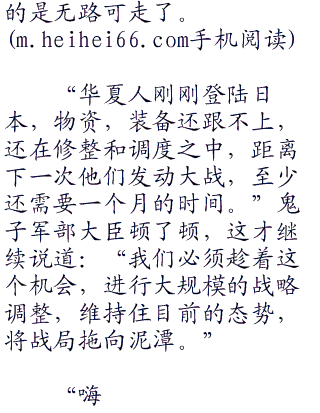 的是无路可走了。
(m.heihei66.com手机阅读)
“华夏人刚刚登陆日
本，物资，装备还跟不上，
还在修整和调度之中，距离
下一次他们发动大战，至少
还需要一个月的时间。”鬼
子军部大臣顿了顿，这才继
续说道：“我们必须趁着这
个机会，进行大规模的战略
调整，维持住目前的态势，
将战局拖向泥潭。”
“嗨